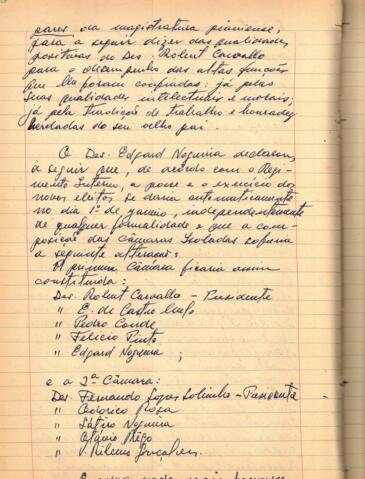 pares da magistratura piauiense,
para a seguir dizer das qualidades
positivas do Des. Robert Carvalho
para o desempenho das altas funções
que lhe foram confiadas: já pelas
suas qualidades intelectuais e morais;
já pela tradição de trabalho e honradez
herdadas do seu velho pai.
O Des. Edgard Nogueira declarou,
a seguir que, de acordo com o Regi-
mento Interno, a posse e o exercício dos
novos eleitos se daria automaticamente
no dia 1º de janeiro, independentemente
de qualquer formalidade e que a com-
posição das Câmaras Isoladas sofreria
a seguinte alteração:
A primeira Câmara ficaria assim
constituída:
Des. Robert Carvalho - Presidente
" E. de Castro
" Pedro Conde
" Felício Pinto
" Edgard Nogueira ;
e a 2ª Câmara:
Des. Fernando Lopes Sobrinho - Presidente
" Rosa
" Sátiro Nogueira
" Otávio Rêgo
" V. Ribeiro Gonçalves.